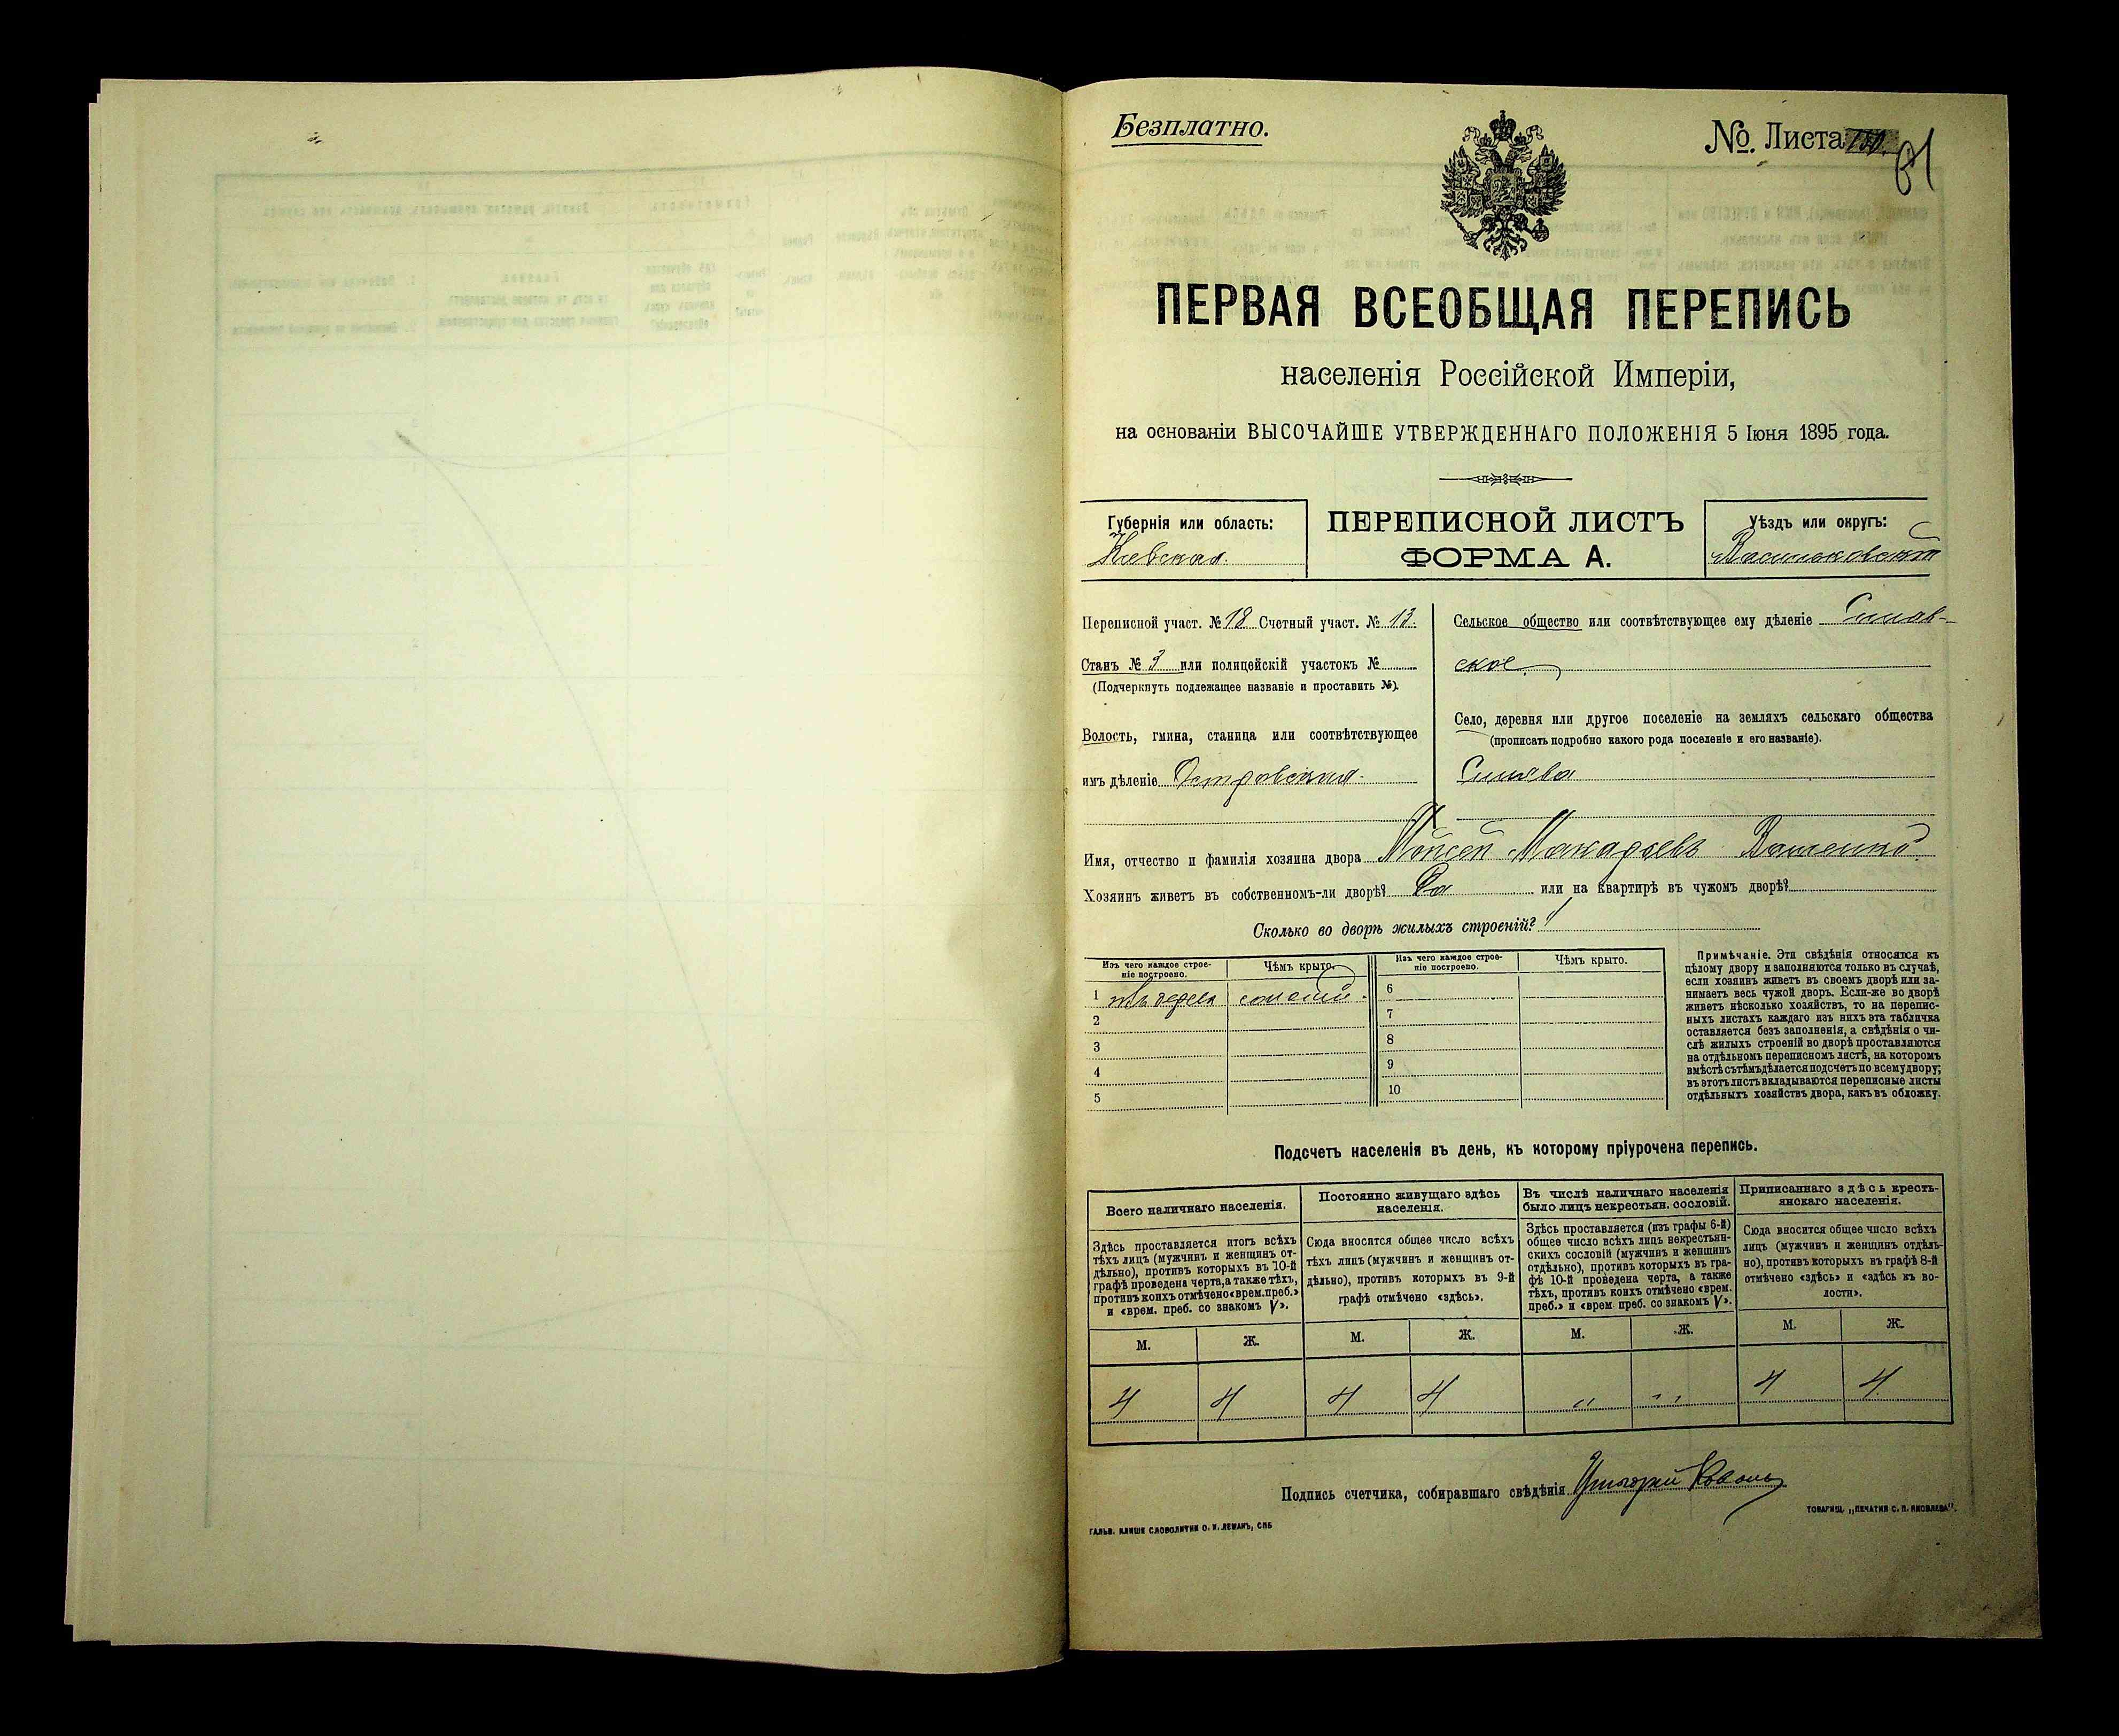 Безплатно.
№. Листа 150. 61
ПЕРВАЯ ВСЕОБЩАЯ ПЕРЕПИСЬ
населенія Россійской Имперіи,
на основаніи ВЫСОЧАЙШЕ УТВЕРЖДЕННАГО ПОЛОЖЕНІЯ 5 Іюня 1895 года.
Губернія или область:
Кіевская.
ПЕРЕПИСНОЙ ЛИСТЪ
ФОРМА А.
Уѣздъ или округъ:
Васильковскій
Переписной участ. № 18 Счетный участ. № 13.
Станъ № 3 или полицейскій участокъ №
(Подчеркнуть подлежащее названіе и проставить №).
Волость, гмина, станица или соотвѣтствующее
имъ дѣленіе Островская.
Сельское общество или соотвѣтствующее ему дѣленіе Синяв-
ское
Село, деревня или другое поселеніе на земляхъ сельскаго общества
(прописать подробно какого рода поселеніе и его названіе).
Синява
Имя, отчество и фамилія хозяина двора Моисей Макарьевъ Ващенко
Хозяинъ живетъ въ собственномъ-ли дворѣ? Да или на квартирѣ въ чужомъ дворѣ?
Сколько во дворѣ жилыхъ строеній? 1
Изъ чего каждое строе-
ніе построено.
Чѣмъ крыто.
Изъ чего каждое строе-
ніе построено.
Чѣмъ крыто.
1 изъ дерева соломой.
2
3
4
5
6
7
8
9
10
Примѣчаніе. Эти свѣдѣнія относятся къ
цѣлому двору и заполняются только въ случаѣ,
если хозяинъ живетъ въ своемъ дворѣ или за-
нимаетъ весь чужой дворъ. Если-же во дворѣ
живетъ нѣсколько хозяйствъ, то на перепис-
ныхъ листахъ каждаго изъ нихъ эта табличка
оставляется безъ заполненія, а свѣдѣнія о чи-
слѣ жилыхъ строеній во дворѣ проставляются
на отдѣльномъ переписномъ листѣ, на которомъ
вмѣстѣ съ тѣмъ дѣлается подсчетъ по всему двору;
въ этотъ листъ вкладываются переписные листы
отдѣльныхъ хозяйствъ двора, какъ въ обложку.
Подсчетъ населенія въ день, къ которому пріурочена перепись.
Всего наличнаго населенія.
Здѣсь проставляется итогъ всѣхъ
тѣхъ лицъ (мужчинъ и женщинъ от-
дѣльно), противъ которыхъ въ 10-й
графѣ проведена черта, а также тѣхъ,
противъ коихъ отмѣчено «врем. преб.»
и «врем. преб. со знакомъ V».
Постоянно живущаго здѣсь
населенія.
Сюда вносится общее число всѣхъ
тѣхъ лицъ (мужчинъ и женщинъ от-
дѣльно), противъ которыхъ въ 9-й
графѣ отмѣчено «здѣсь».
Въ числѣ наличнаго населенія
было лицъ некрестьян. сословій.
Здѣсь проставляется (изъ графы 6-й)
общее число всѣхъ лицъ некрестьян-
скихъ сословій (мужчинъ и женщинъ
отдѣльно), противъ которыхъ въ гра-
фѣ 10-й проведена черта, а также
тѣхъ, противъ коихъ отмѣчено «врем.
преб.» и «врем преб. со знакомъ V».
Приписаннаго здѣсь кресть-
янскаго населенія.
Сюда вносится общее число всѣхъ
лицъ (мужчинъ и женщинъ отдѣль-
но), противъ которыхъ въ графѣ 8-й
отмѣчено «здѣсь» и «здѣсь къ во-
лости».
М. Ж. М. Ж. М. Ж. М. Ж.
4 4 4 4 " " 4 4
Подпись счетчика, собиравшаго свѣдѣнія Григорій Коваль
ГАЛЬВ. КЛИШЕ СЛОВОЛИТНИ О. И. ЛЕМАНЪ, СПБ
ТОВАРИЩ. „ПЕЧАТНЯ С. П. ЯКОВЛЕВА".